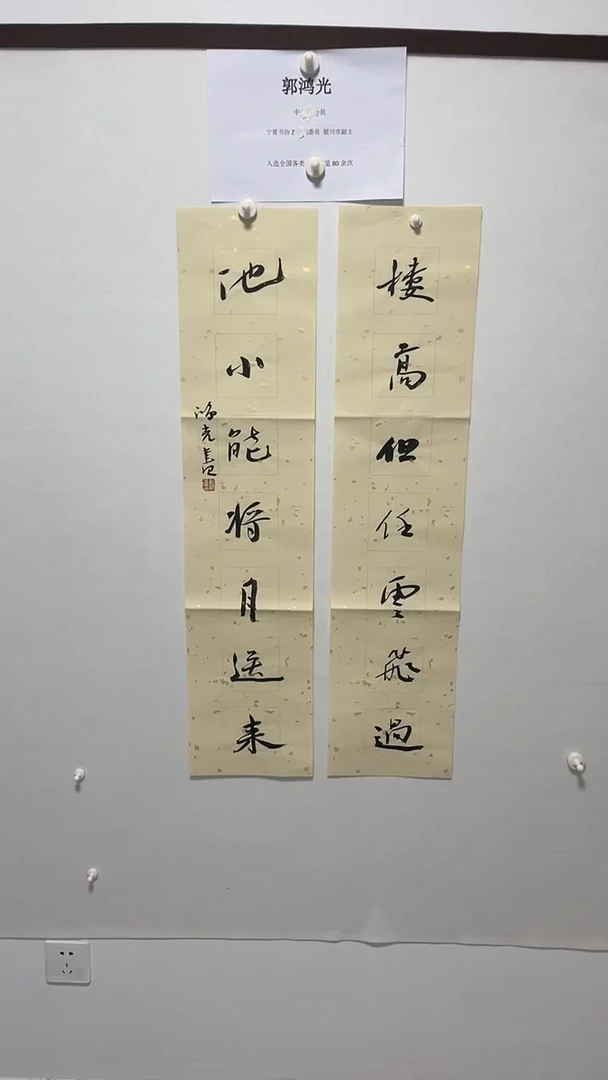 郭鸿光
中 会员
宁夏书协 委员 银川市副主
入选全国各类 览 80 余次
楼高但任雲飛過
池小能将月送来
鸿光书